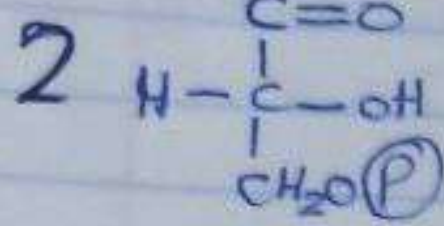 C=O
2 H-C-OH
CH₂O(P)